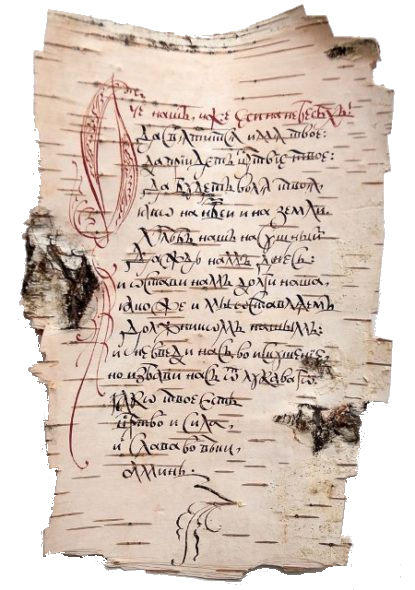 Отче нашъ, иже еси на небесѣхъ!
Да свѧтитсѧ имѧ твое:
да прiидетъ цр҃твiе твое:
да будетъ волѧ твоѧ,
ꙗкѡ на нб҃си и на земли.
Хлѣбъ нашъ насущный
даждь намъ днесь:
и ѡстави намъ долги наша,
ꙗкоже и мы ѡставлѧемъ
должникѡмъ нашымъ:
и не введи насъ во искушенiе,
но избави насъ ѿ лукавагѡ
ꙗкѡ твое есть
цр҃тво и сила,
и слава во вѣки,
аминь.